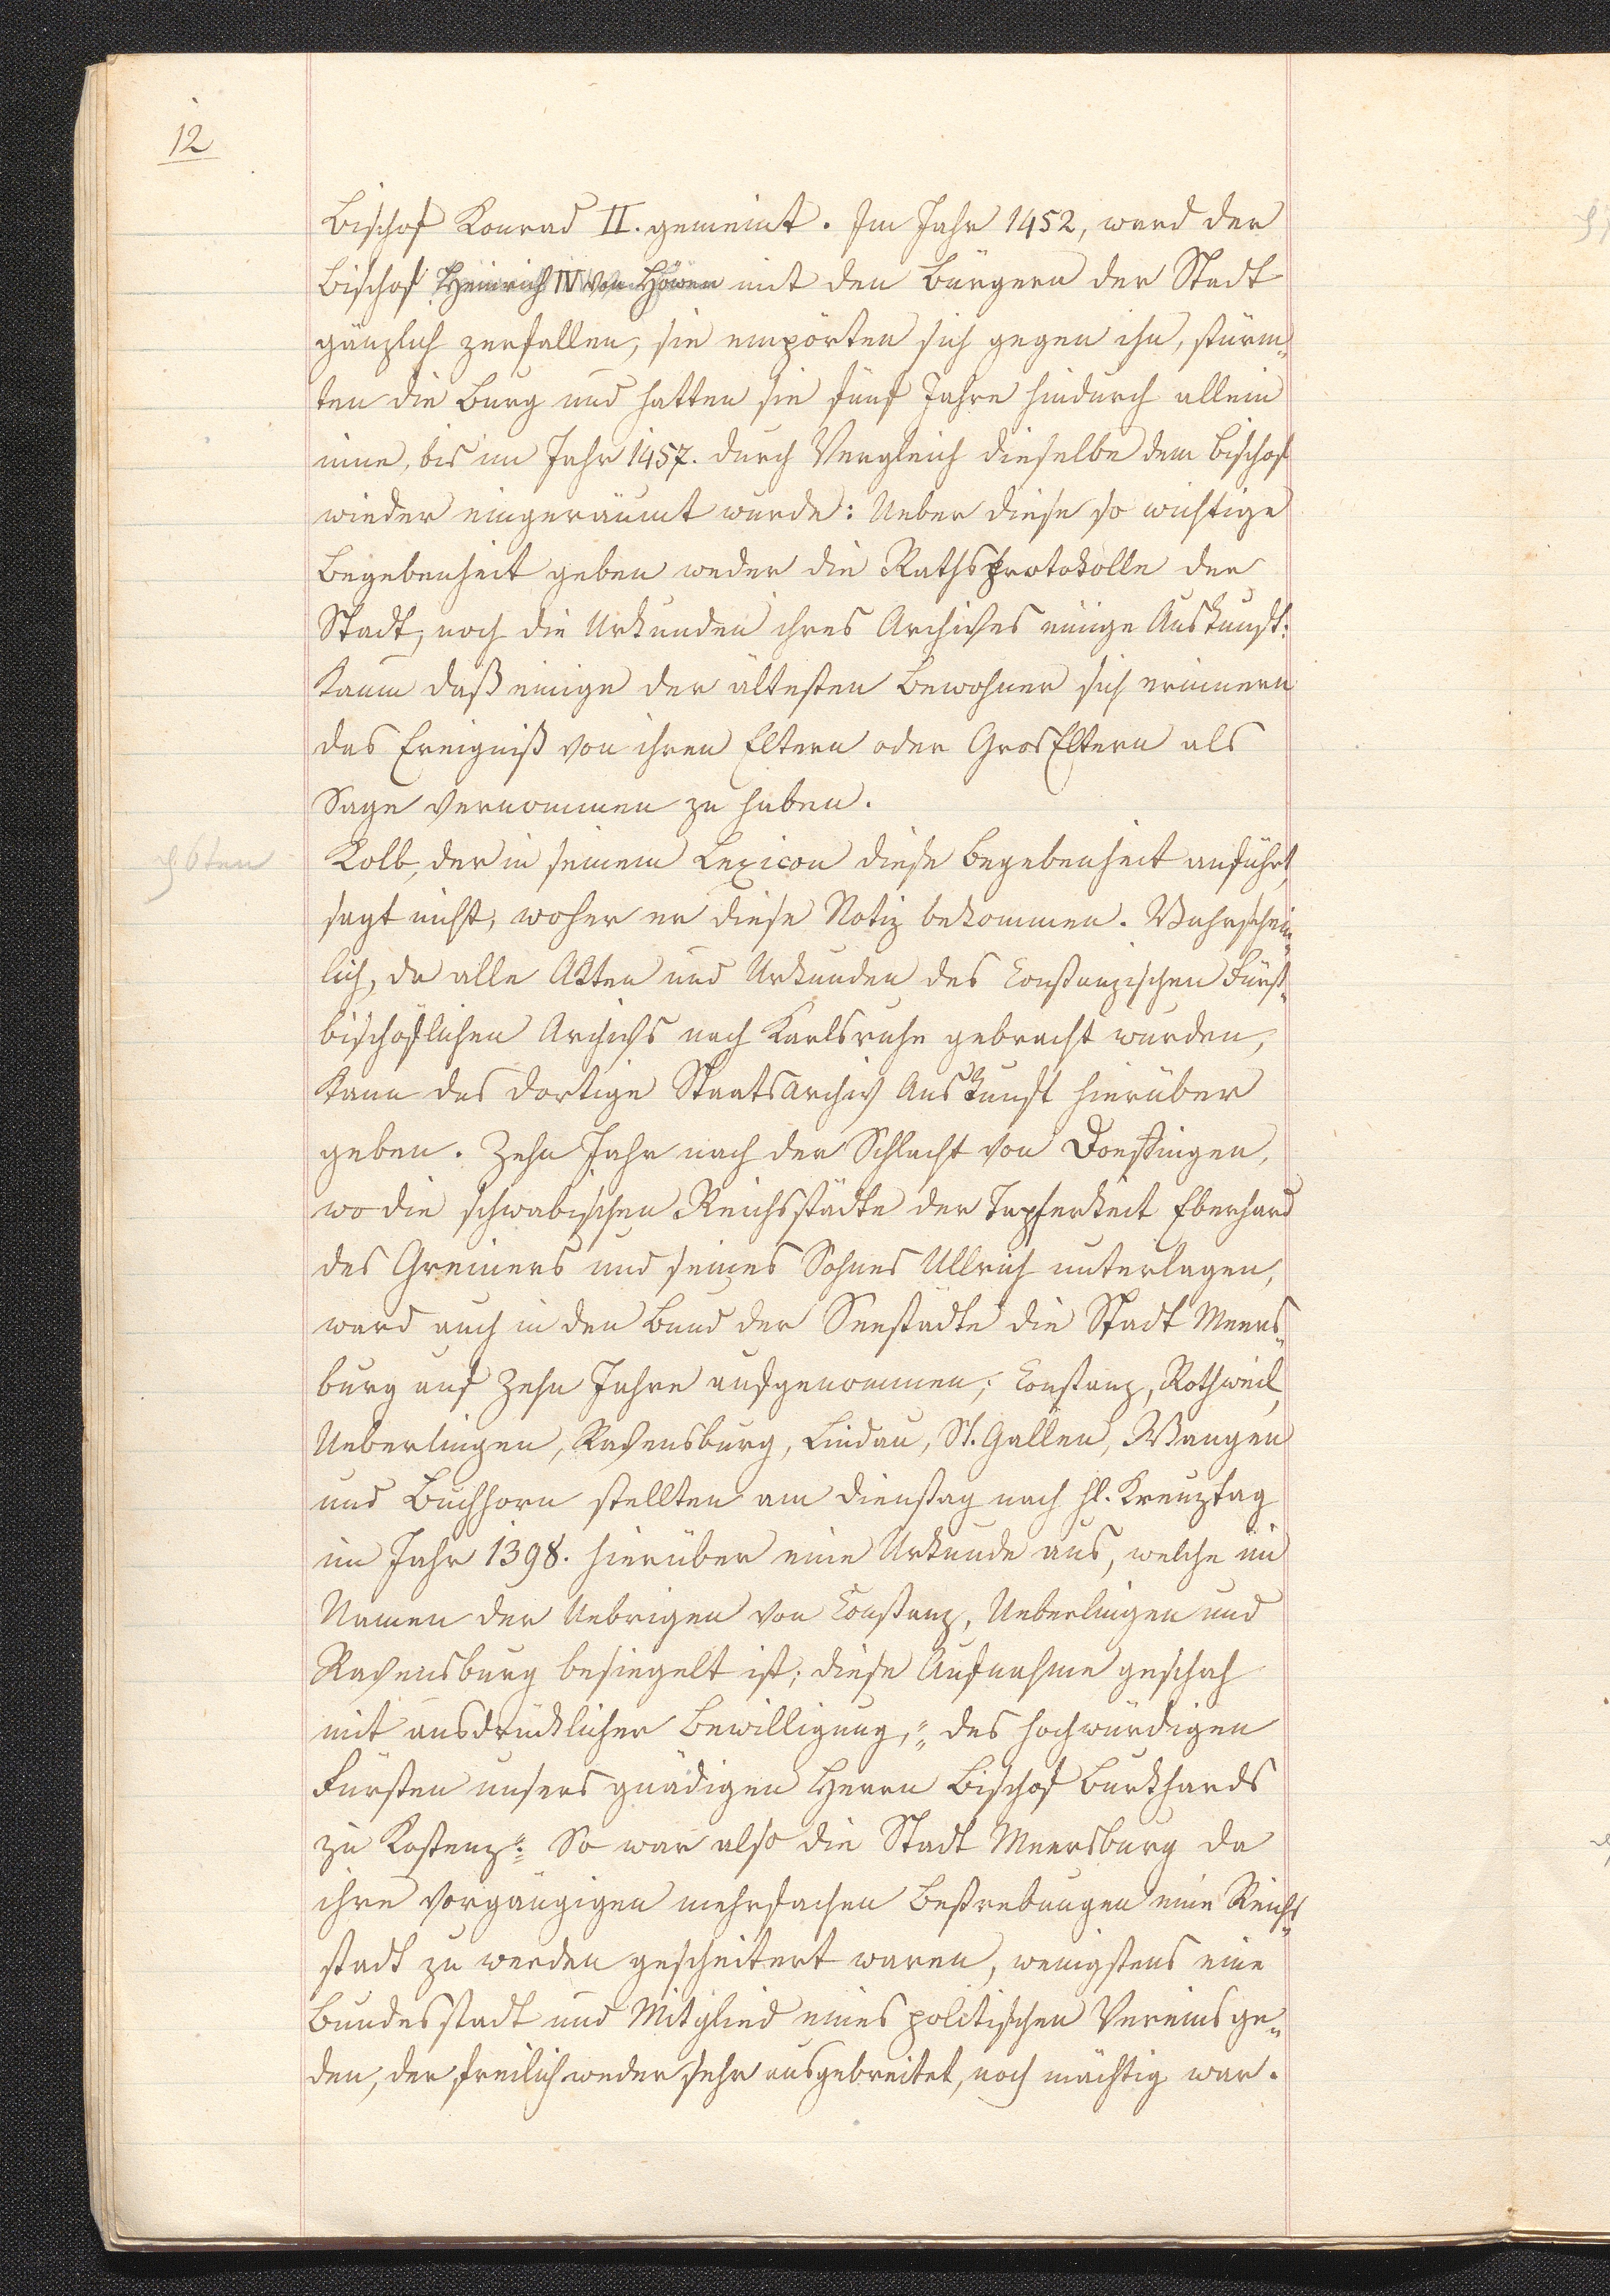 12
Bischof Konrad II. gemeint. Im Jahr 1452, ward der
Bischof Heinrich IV von Höwen mit den Bürgern der Stadt
gänzlich zerfallen, sie empörten sich gegen ihn, stürm„
ten die Burg und hatten sie fünf Jahre hindurch allein
inne, bis im Jahr 1457. durch Vergleich dieselbe dem Bischof
wieder eingeräumt wurde: Ueber diese so wichtige
Begebenheit geben weder die Rathsprotokolle der
Stadt, noch die Urkunden ihres Archives einige Auskunft:
kaum daß einige der ältesten Bewohner sich erinnern
das Ereigniß von ihren Eltern oder GrosEltern als
Sage vernommen zu haben.
Kolb, der in seinem Lexicon diese Begebenheit anführt,
sagt nicht, woher er diese Notiz bekommen. Wahrschein„
lich, da alle Akten und Urkunden des Constanzischen Fürst„
bischöflichen Archivs nach Karlsruhe gebracht wurden,
kann das dortige Staatsarchiv Auskunft hierüber
geben. Zehn Jahr nach der Schlacht von Doeffingen,
wo die schwabischen Reichsstädte der Tapferkeit Eberhard
des Greiners und seines Sohnes Ullrich unterlagen,
ward auch in den Bund der Seestädte die Stadt Meers„
burg auf zehn Jahre aufgenommen; Constanz, Rothweil,
Ueberlingen, Ravensburg, Lindau, St. Gallen, Wangen
und Buchhorn stellten am Dienstag nach hl. Kreuztag
im Jahr 1398. hierüber eine Urkunde aus, welche im
Namen der Uebrigen von Constanz, Ueberlingen und
Ravensburg besiegelt ist; diese Aufnahme geschah
mit ausdrücklicher Bewilligung, „des hochwürdigen
Fürsten unsers gnädigen Herrn Bischof Burkhards
zu Kostenz“. So war also die Stadt Meersburg da
ihre vorgängigen mehrfachen Bestrebungen eine Reichs„
stadt zu werden gescheitert waren, wenigstens eine
Bundesstadt und Mitglied eines politischen Vereins ge„
den, der freilich weder sehr ausgebreitet, noch mächtig war.